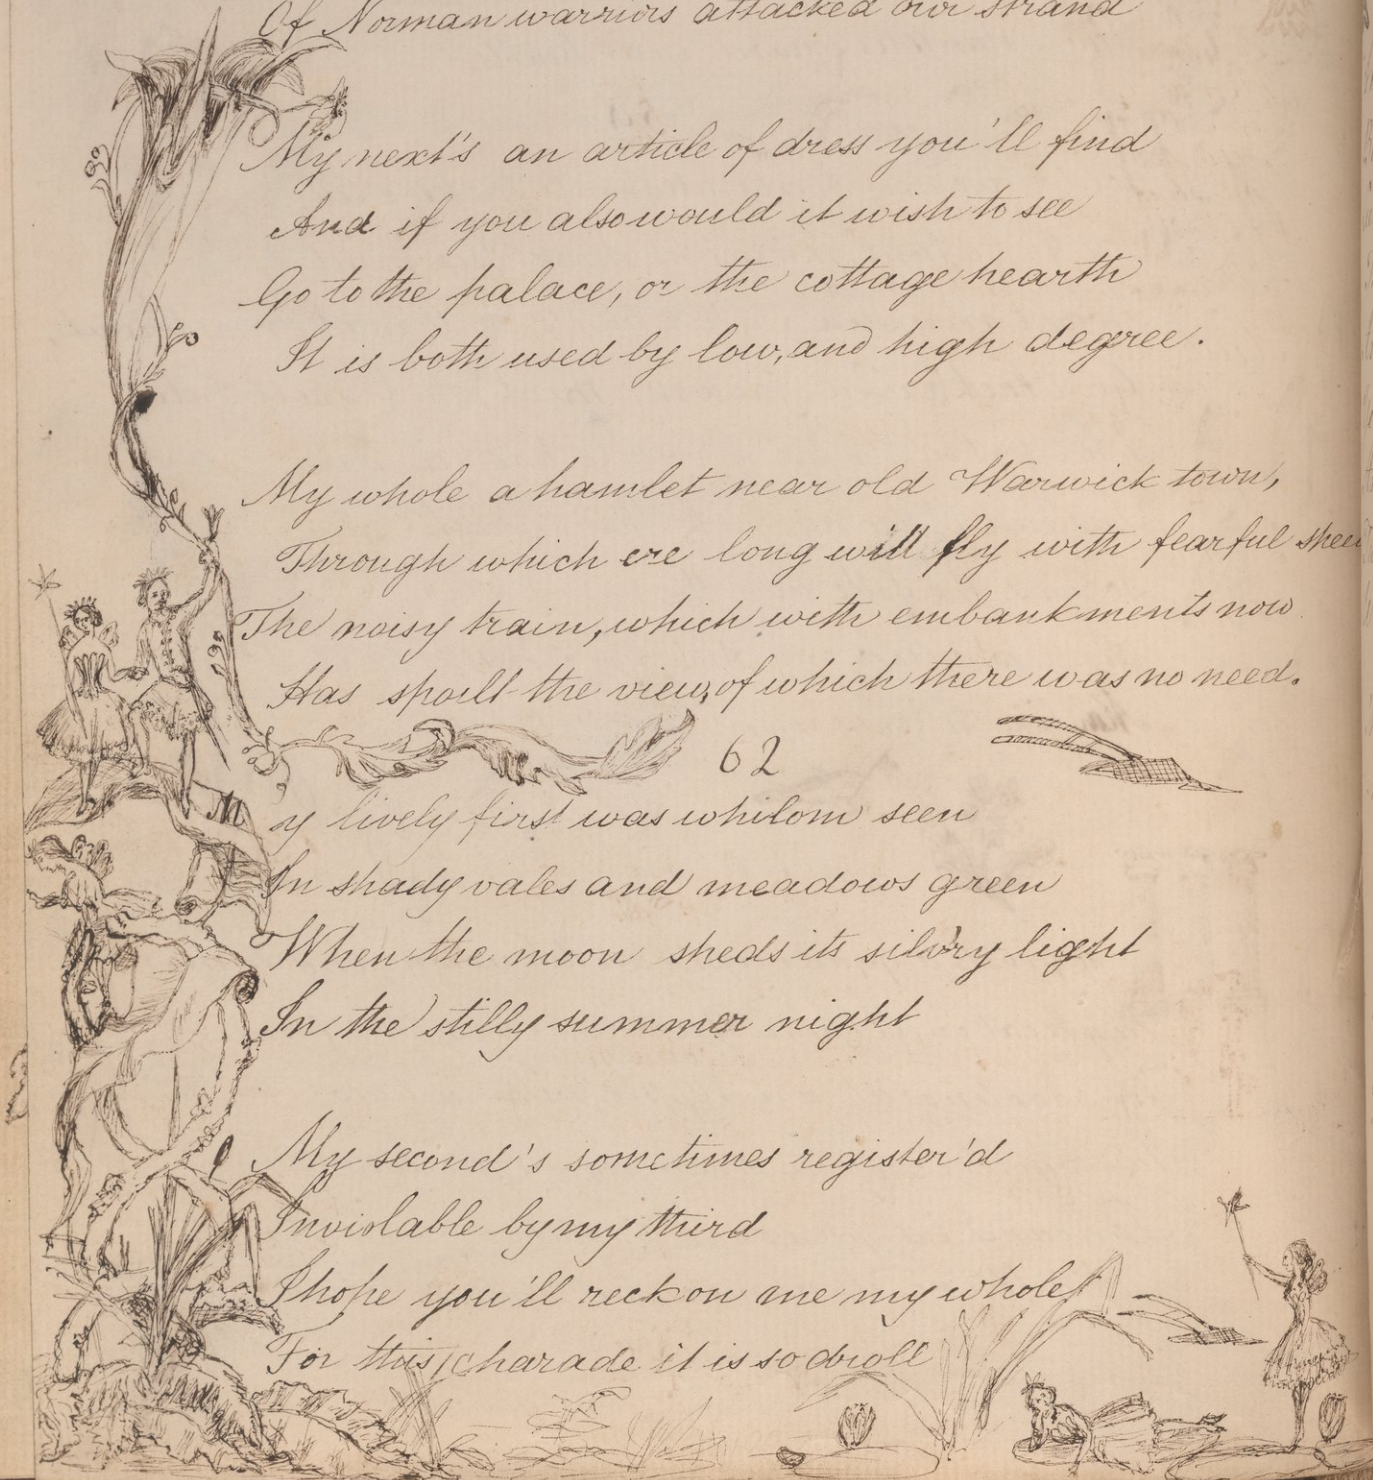 Of Norman warriors attacked our strand
My next's an article of dress you'll find
And if you also would it wish to see
Go to the palace, or the cottage hearth
It is both used by low, and high degree.
My whole a hamlet near old Warwick town,
Through which ere long will fly with fearful
The noisy train, which with embankments now
Has spoilt the view, of which there was no need.
62
My lively first was whilom seen
In shady vales and meadows green
When the moon sheds its silvry light
In the stilly summer night
My second's sometimes register'd
Inviolable by my third
I hope you'll reckon me my whole
For this charade it is so droll